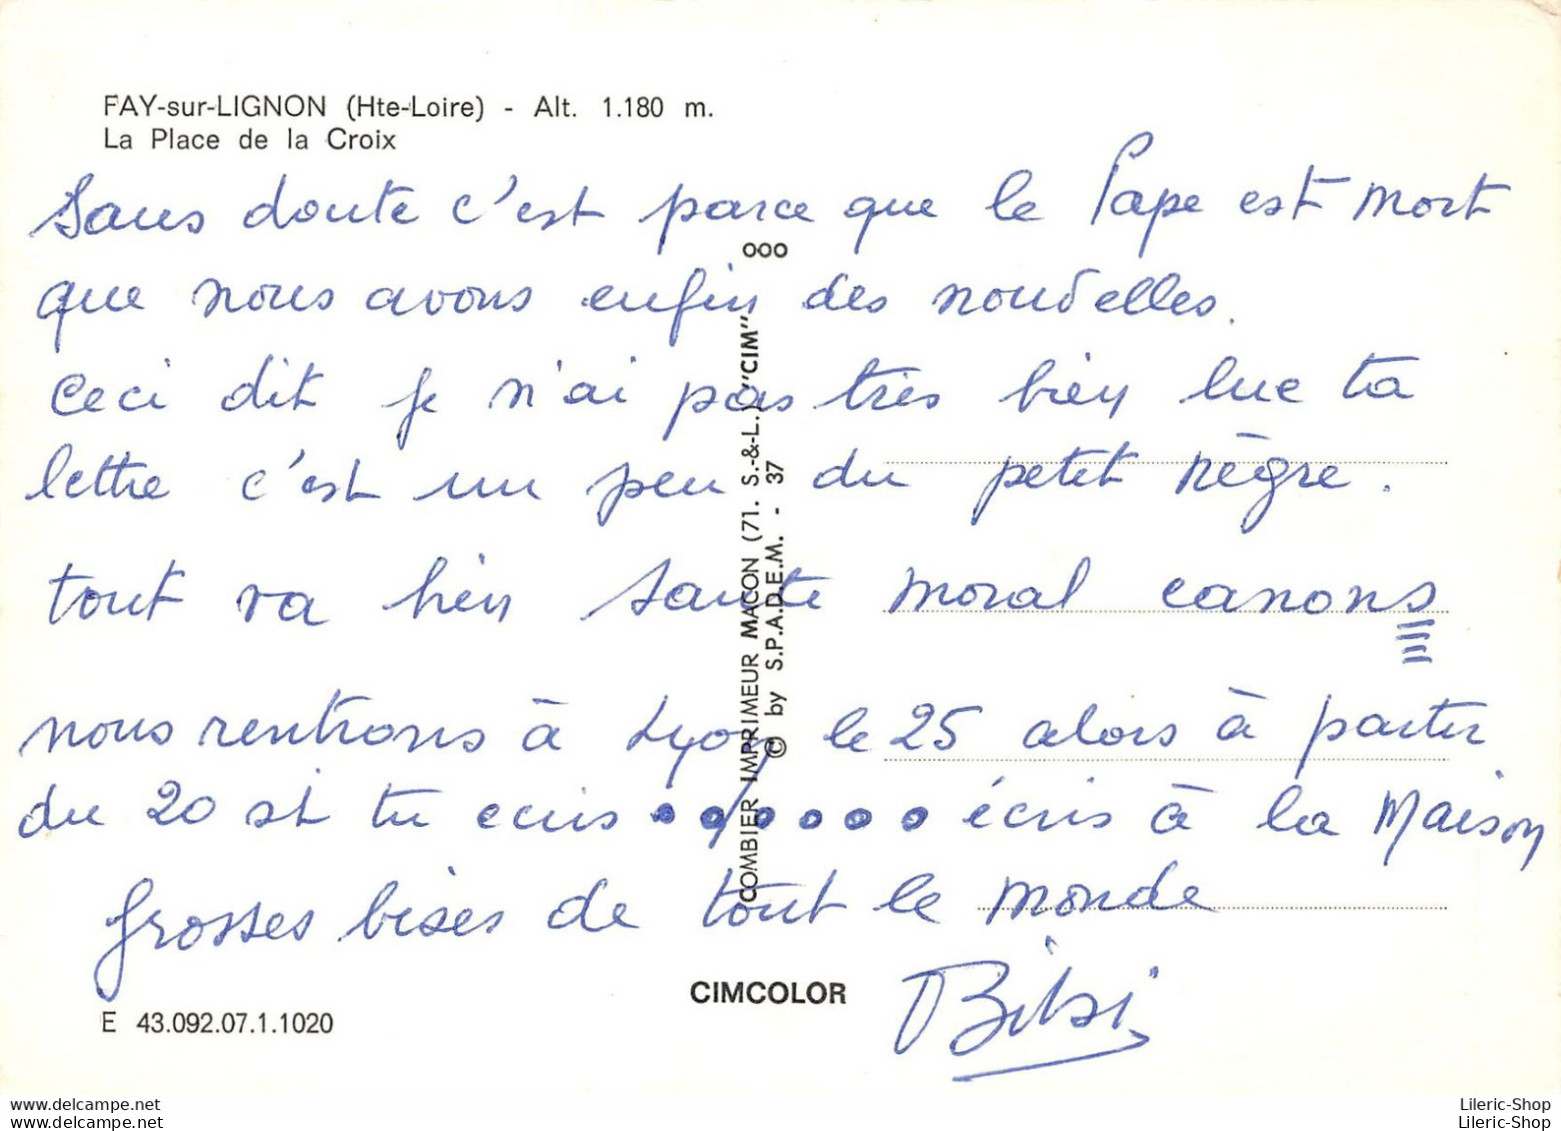 FAY-sur-LIGNON (Hte-Loire) - Alt. 1.180 m.
La Place de la Croix
Sans doute c'est parce que le Pape est mort
que nous avons enfin des nouvelles.
Ceci dit je n'ai pas très bien lue ta
lettre c'est un peu du petit nègre.
tout va bien sante moral canons
nous rentrons à Lyon le 25 alors à partir
du 20 si tu ecris ooooooo écris à la Maison
grosses bises de tout le monde
Bibi
ooo
COMBIER IMPRIMEUR MACON (71. S.-&-L.) "CIM"
© by S.P.A.D.E.M. - 37
CIMCOLOR
E 43.092.07.1.1020
www.delcampe.net
www.delcampe.net
Lileric-Shop
Lileric-Shop